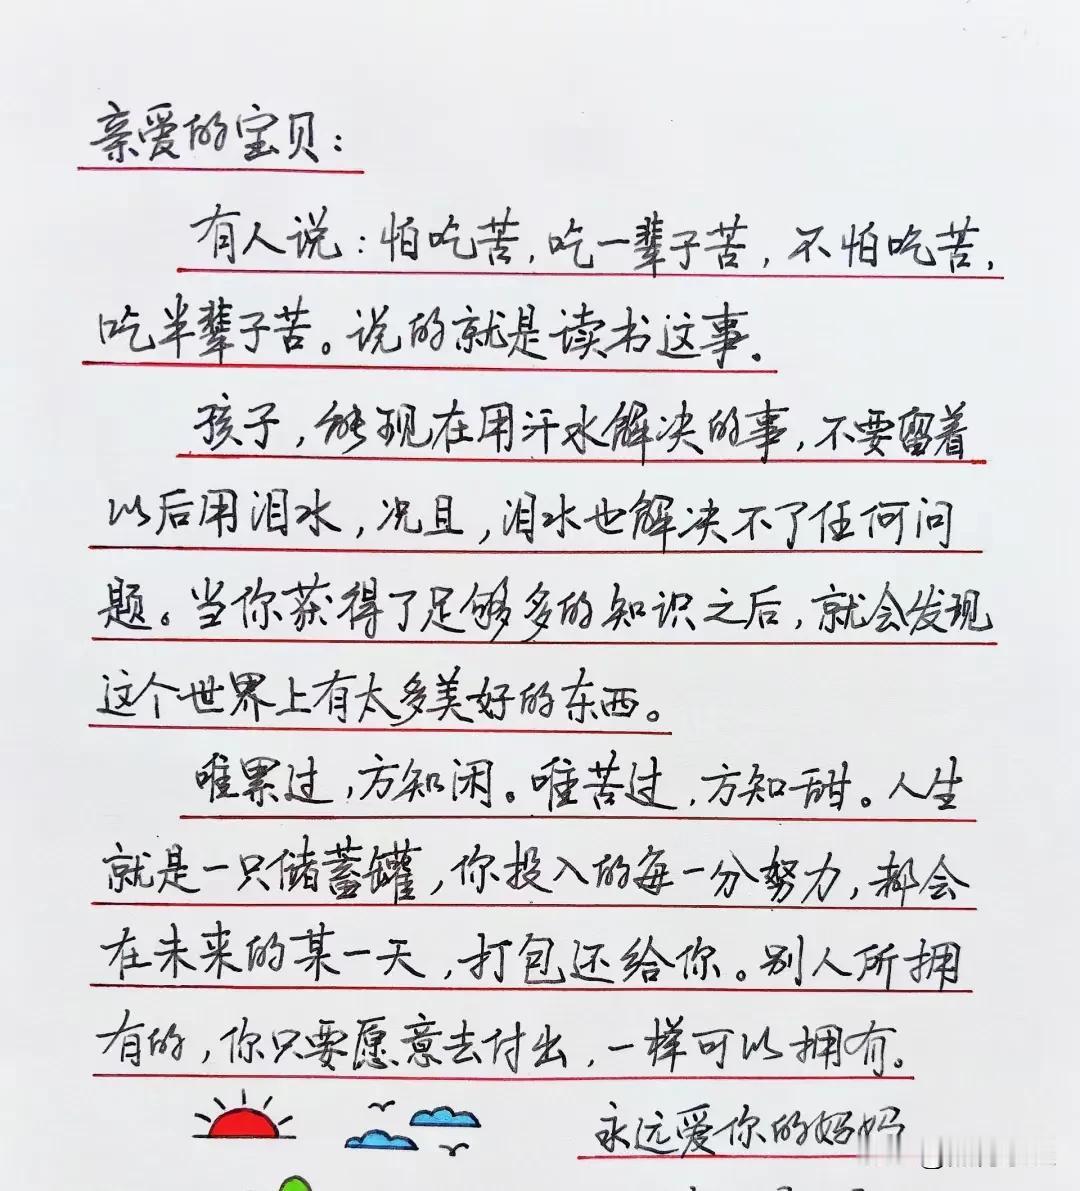 亲爱的宝贝：
有人说：怕吃苦，吃一辈子苦，不怕吃苦，
吃半辈子苦。说的就是读书这事.
孩子，能现在用汗水解决的事，不要留着
以后用泪水，况且，泪水也解决不了任何问
题。当你获得了足够多的知识之后，就会发现
这个世界上有太多美好的东西。
唯累过，方知闲。唯苦过，方知甜。人生
就是一只储蓄罐，你投入的每一分努力，都会
在未来的某一天，打包还给你。别人所拥
有的，你只要愿意去付出，一样可以拥有。
永远爱你的妈妈